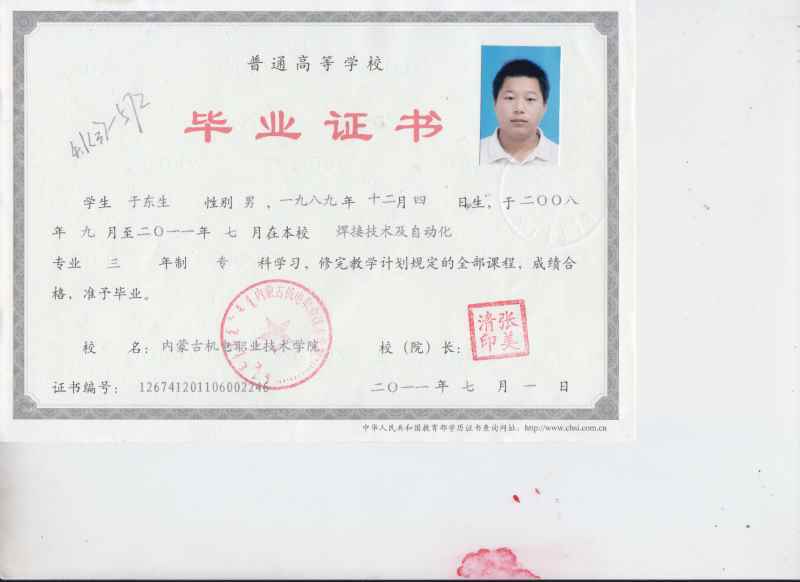 普通高等学校
毕业证书
学生 于东生 性别 男 ，一九八九年 十二月 四 日生，于二〇〇八
年 九 月至二〇一一年 七 月在本校 焊接技术及自动化
专业 三 年制 专 科学习，修完教学计划规定的全部课程，成绩合
格，准予毕业。
校 名：内蒙古机电职业技术学院 校（院）长：
张美清印
证书编号： 126741201106002246 二〇一一年 七 月 一 日
中华人民共和国教育部学历证书查询网址：http://www.chsi.com.cn